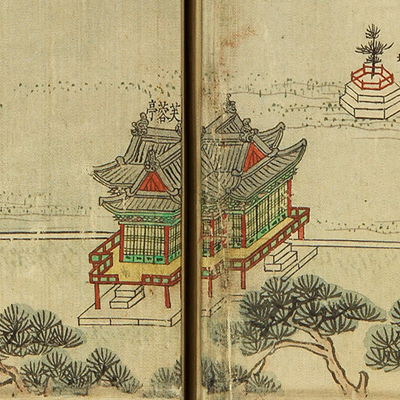 芙蓉亭